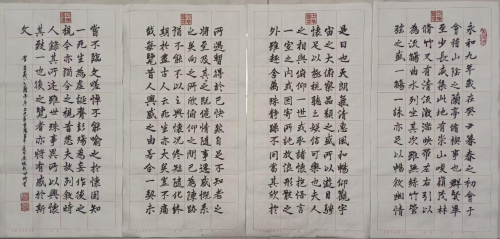 永和九年歲在癸丑暮春之初會于
會稽山陰之蘭亭脩稧事也群賢畢
至少長咸集此地有崇山峻嶺茂林
脩竹又有清流激湍映帶左右引以
為流觴曲水列坐其次雖無絲竹管
弦之盛一觴一詠亦足以暢敘幽情
是日也天朗氣清惠風和暢仰觀宇
宙之大俯察品類之盛所以遊目騁
懷足以極視聽之娛信可樂也夫人
之相與俯仰一世或取諸懷抱悟言
一室之內或因寄所託放浪形骸之
外雖趣舍萬殊靜躁不同當其欣於
所遇暫得於己快然自足不知老之
將至及其所之既倦情隨事遷感慨系
之矣向之所欣俛仰之間已為陳跡
猶不能不以之興懷況修短隨化終
期於盡古人云死生亦大矣豈不痛
哉每覽昔人興感之由若合一契未
嘗不臨文嗟悼不能喻之於懷固知
一死生為虛誕齊彭殤為妄作後之
視今亦猶今之視昔悲夫故列敘時
人錄其所述雖世殊事異所以興懷
其致一也後之覽者亦將有感於斯
文